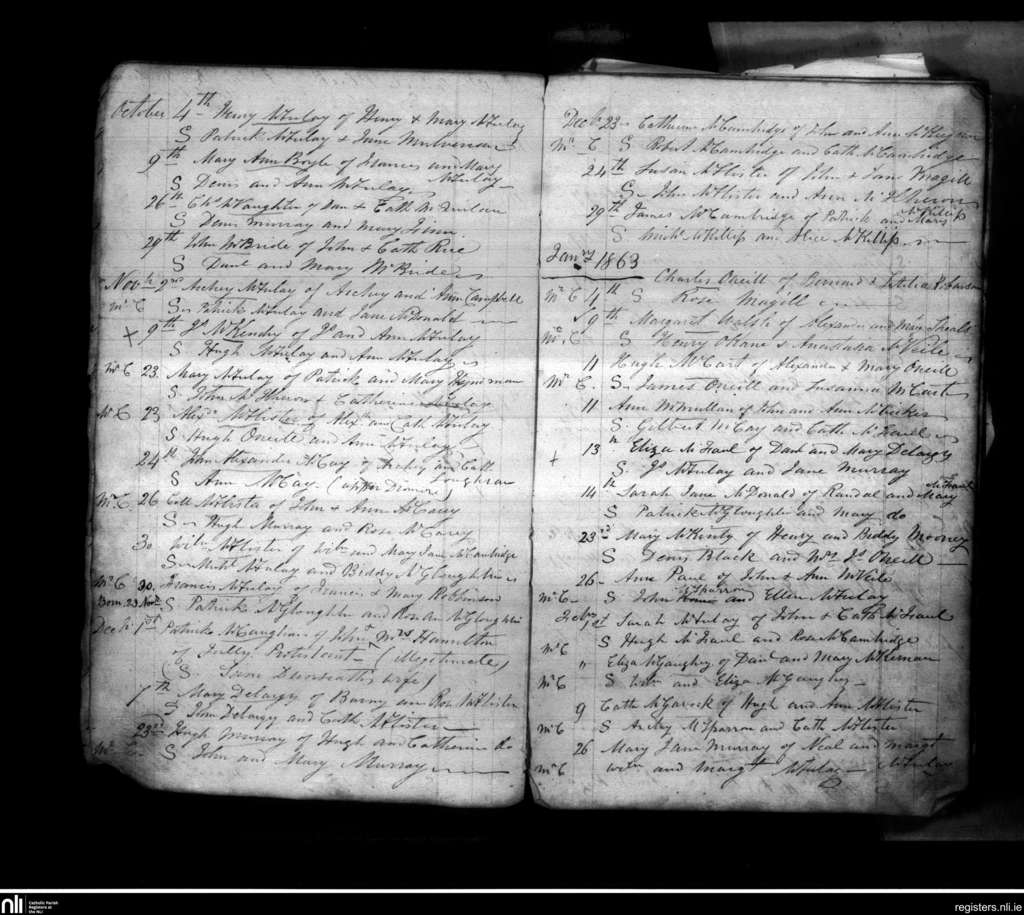 October 4th Mary McAulay of Henry & Mary McAulay
S Patrick McAulay & Jane
9th Mary Ann Boyle of Francis and Mary McAulay
S Denis and Ann McAulay
26th Chs McNaughten of Dan & Cath McQuilan
S Denis Murray and Mary
29th John McBride of John & Cath Rice
S Danl and Mary McBride
Novbr 2nd Archey McAulay of Archey and Ann Campbell
Mc C Ss Patrick McAulay and Jane McDonald
+ 9th Js McKendry of Js and Ann McAulay
S Hugh McAulay and Ann McAulay
Mc C 23. Mary McAulay of Patrick and Mary Hyndman
S John & Catherine McAulay
Mc C 23 Alexr McAlister of Alexr and Cath McAulay
S Hugh Oneill and Ann McAulay
24th Jane Alexander McCay of Archey and Cath Loughran
S Ann McCay.
Mc C. 26 Cath McAlister of John & Ann McCarey
S Hugh Murray and Rose McCarey
30 Willm McAlister of Willm and Mary Jane McCambridge
S Michl McAulay and Biddy McGloughlin
Mc C 30. Francis McAulay of Francis & Mary Robbinson
Born 23 Novr S Patrick McGloughlin and Ros Ann McGloughlin
Decbr 1st Patrick McCaughan of John & Mary Hamilton
of Protestant (Illegitimate)
(S Jane wife)
7th Mary Delargy of Barny and Ros McAlister
S John Delargy and Cath McAlister
23rd Hugh Murray of Hugh and Catherine do
Mc C S John and Mary Murray
Decbr 23 Catherine McCambridge of John and Ann
Mc C S Robert McCambridge and Cath McCambridge
24th Susan McAlister of John & Jane Magill
S John McAlister and Ann
29th James McCambridge of Patrick and Mary McKillip
S Michl McKillip and Alice McKillip
Janry 1863
Charles Oneill of Bernard & Letitia
Mc C 4th S Rose Magill
9th Margaret Walsh of Alexander and Mary
Mc. C S Henry Okane & Anastatia McVeile
11 Hugh McCart of Alexander & Mary Oneill
Mc C. S James Oneill and Susanna McCart
11 Ann McMullan of John and Ann
S. Gilbert McCay and Cath McFaull
+ 13th Eliza McFaul of Danl and Mary Delargy
S Js McAulay and Jane Murray
14th Sarah Jane McDonald of Randal and Mary McFaul
S Patrick McGloughlin and Mary do
23rd Mary McKinty of Henry and Biddy Mooney
S Denis Black and Mrs Js Oneill
26 Anne Paul of John & Ann McVeile
Mc C S John McSparron and Ellen McAulay
Febry 1st Sarah McAulay of John & Cath McFaul
Mc C S Hugh McFaul and Rose McCambridge
" Eliza McGaughey of Danl and Mary McKernan
Mc C S Willm and Eliza McGaughey
9 Cath McGavock of Hugh and Ann McAlister
Mc C S Archy McSparron and Cath McAlister
26 Mary Jane Murray of Neal and Margt McAulay
Mc C Willm and Margt McAulay
nli
Catholic Parish
Registers at
the NLI
registers.nli.ie